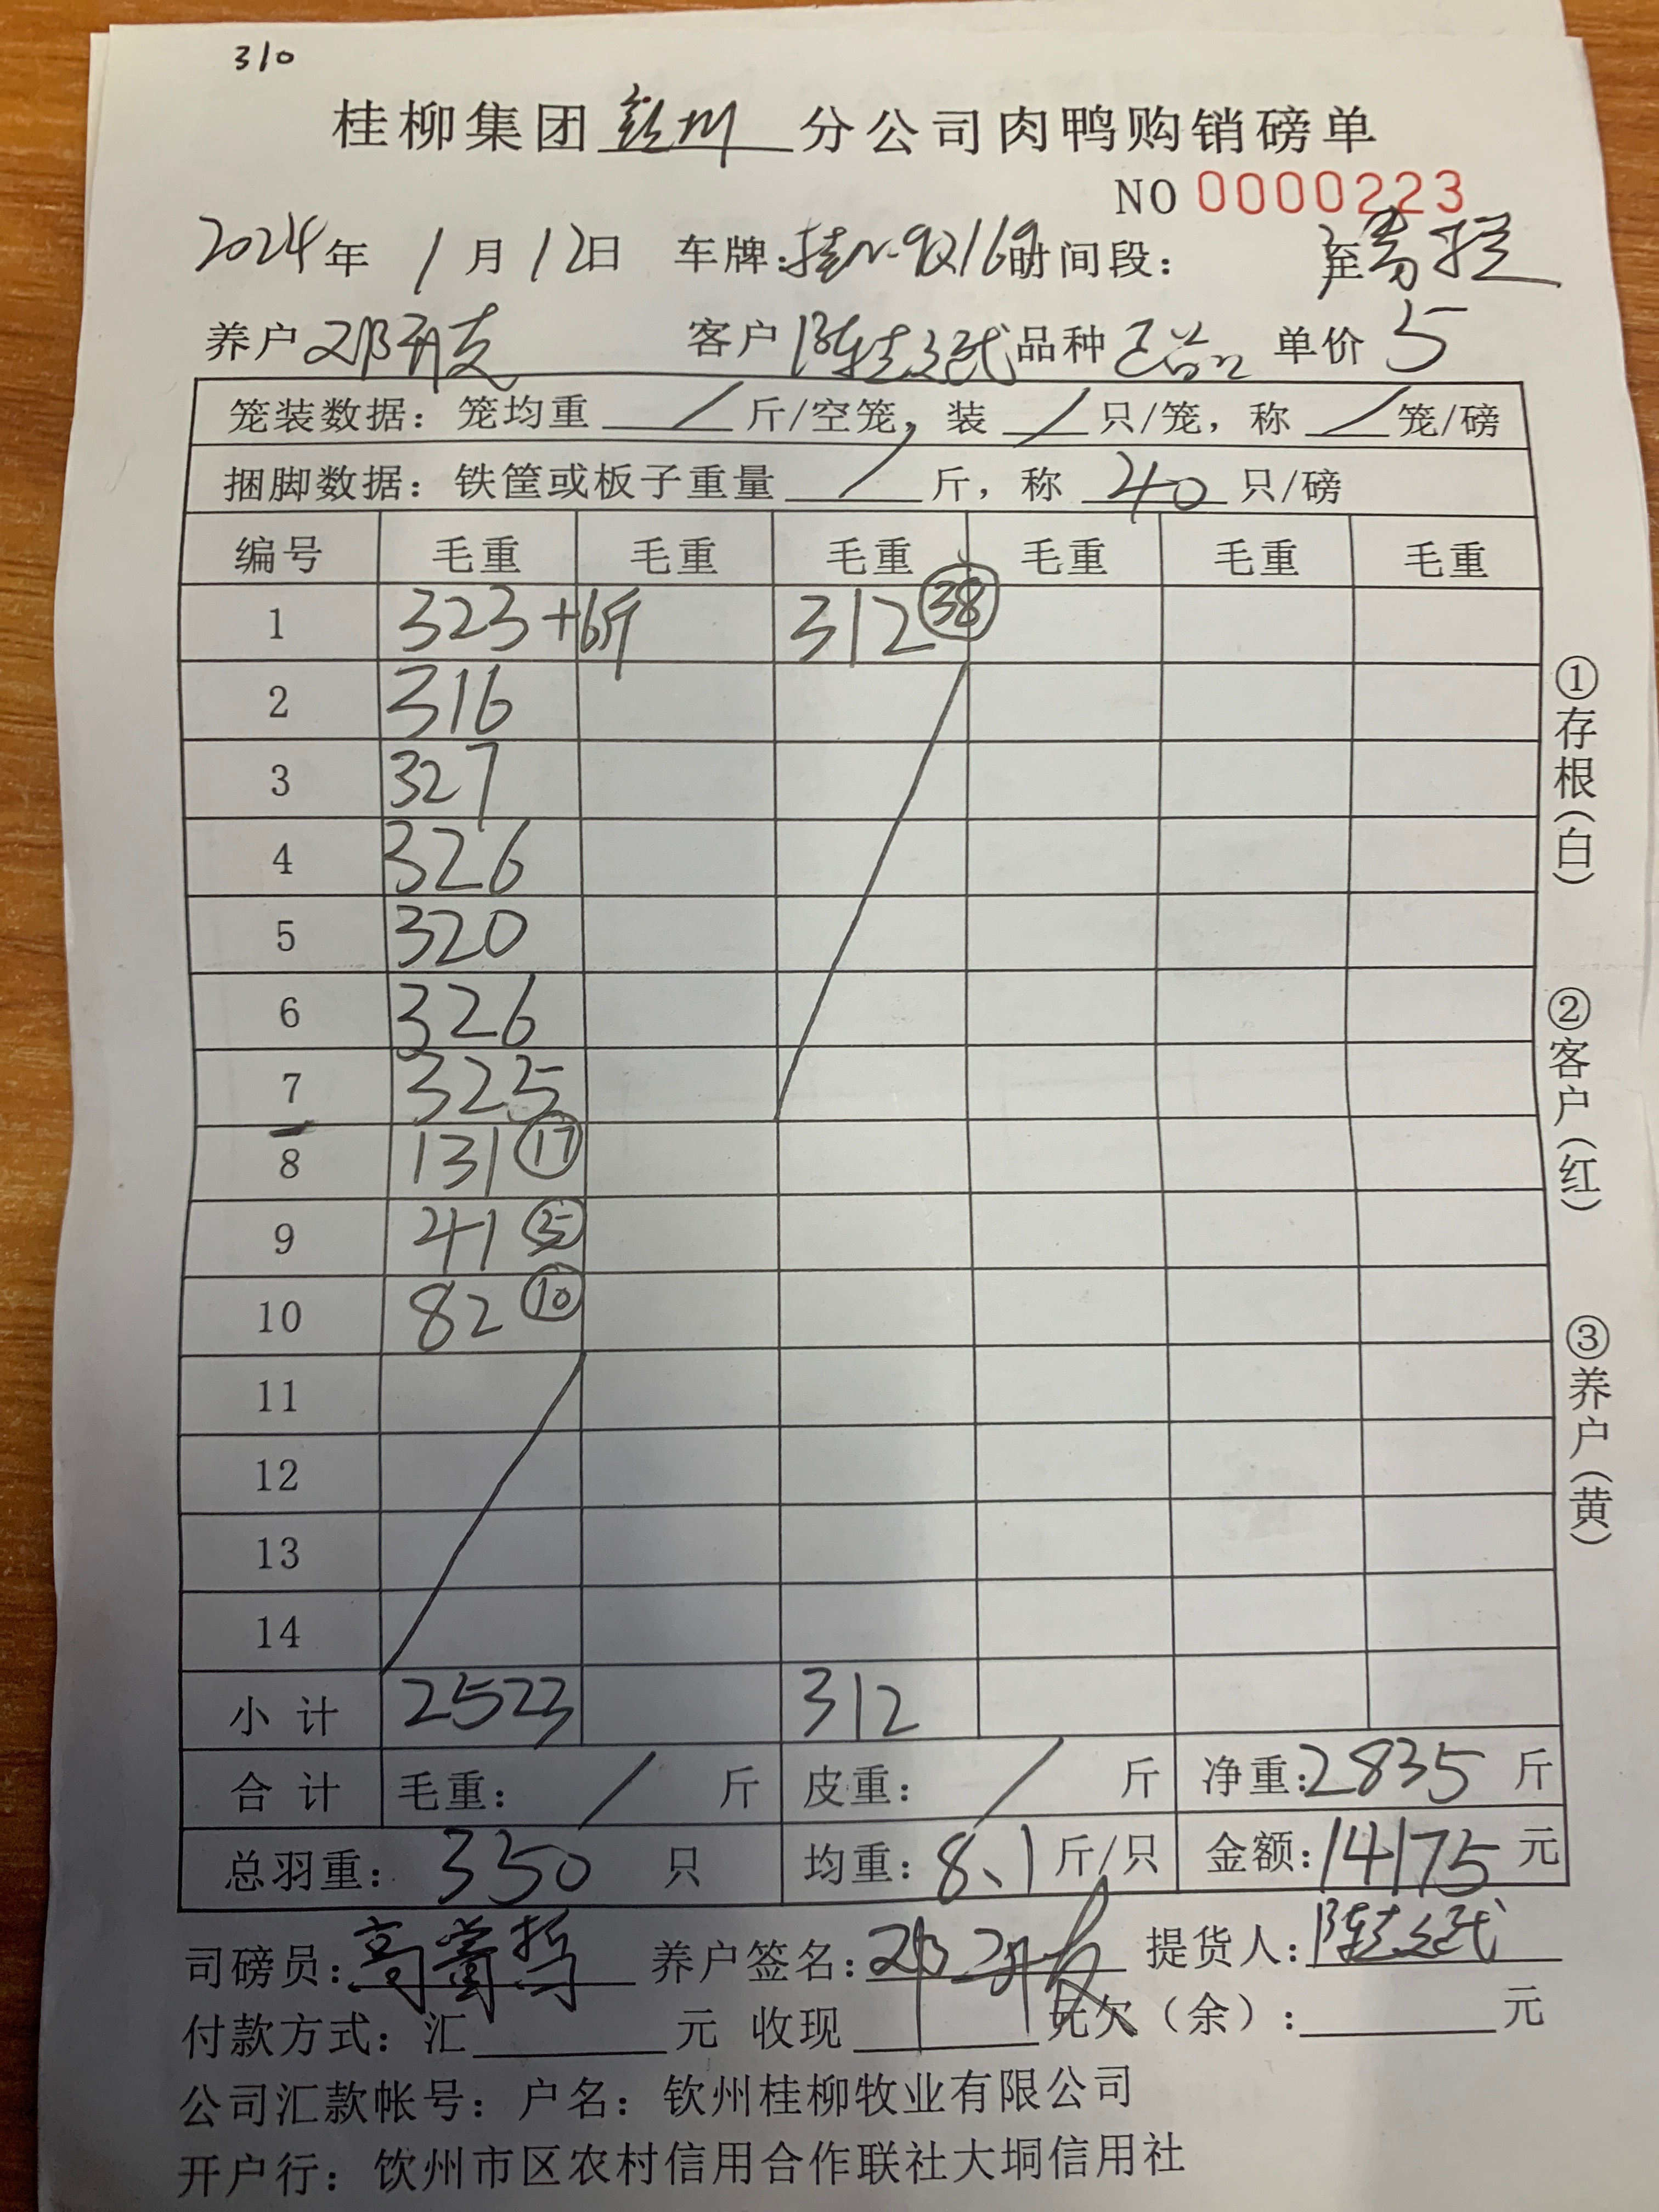 310
桂柳集团钦州分公司肉鸭购销磅单
NO 0000223
2024年 1月12日 车牌: 时间段: 至
养户 邓开 客户 陈 品种 单价 5
笼装数据: 笼均重 / 斤/空笼, 装 / 只/笼, 称 / 笼/磅
捆脚数据: 铁筐或板子重量 / 斤, 称 40 只/磅
编号 毛重 毛重 毛重 毛重 毛重 毛重
1 323+6斤 312 38
2 316
3 327
4 326
5 320
6 326
7 325
8 131 17
9 41 5
10 82 10
11
12
13
14
小计 2523 312
合计 毛重: / 斤 皮重: / 斤 净重:2835 斤
总羽重: 350 只 均重:8、1斤/只 金额:14175元
司磅员:高 养户签名:邓开 提货人:陈
付款方式: 汇 元 收现 元欠(余): 元
公司汇款帐号: 户名: 钦州桂柳牧业有限公司
开户行: 饮州市区农村信用合作联社大垌信用社
①存根(白)
②客户(红)
③养户(黄)